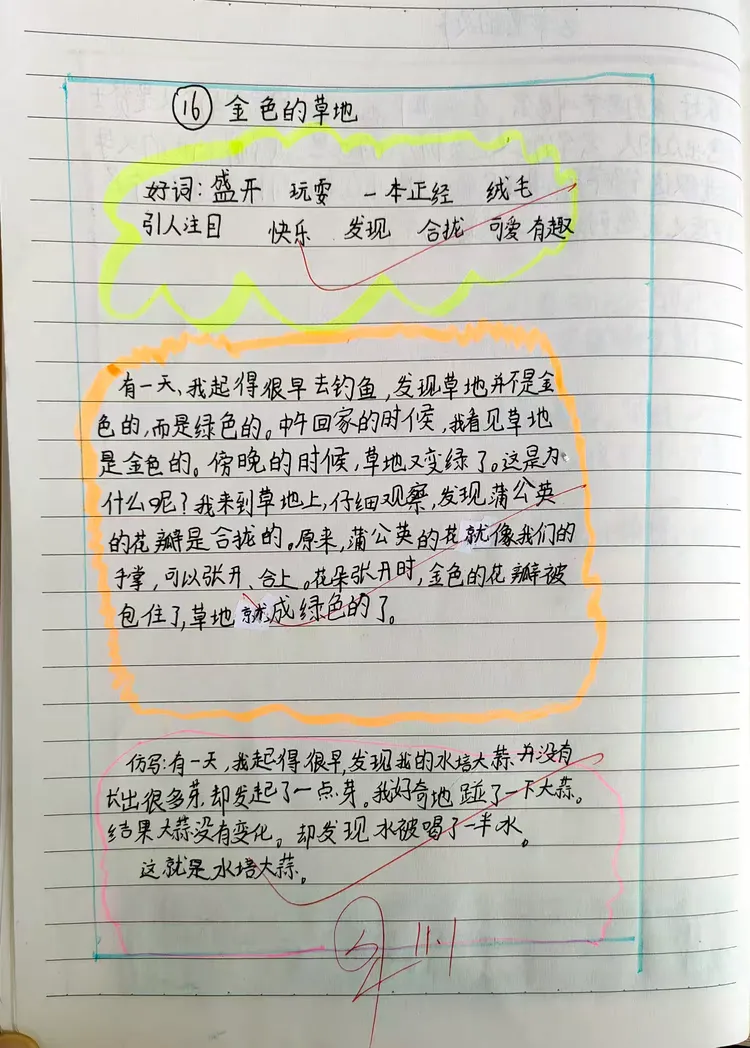 16 金色的草地
好词:盛开 玩耍 一本正经 绒毛
引人注目 快乐 发现 合拢 可爱 有趣
有一天、我起得很早去钓鱼,发现草地并不是金
色的,而是绿色的。中午回家的时候,我看见草地
是金色的。傍晚的时候,草地又变绿了。这是为
什么呢?我来到草地上,仔细观察,发现蒲公英
的花瓣是合拢的。原来,蒲公英的花就像我们的
手掌,可以张开、合上。花朵张开时,金色的花瓣被
包住了,草地就成绿色的了。
仿写:有一天,我起得很早,发现我的水培大蒜并没有
长出很多芽,却发起了一点芽。我好奇地踫了一下大蒜。
结果大蒜没有变化。却发现水被喝了一半水。
这就是水培大蒜。
11.1